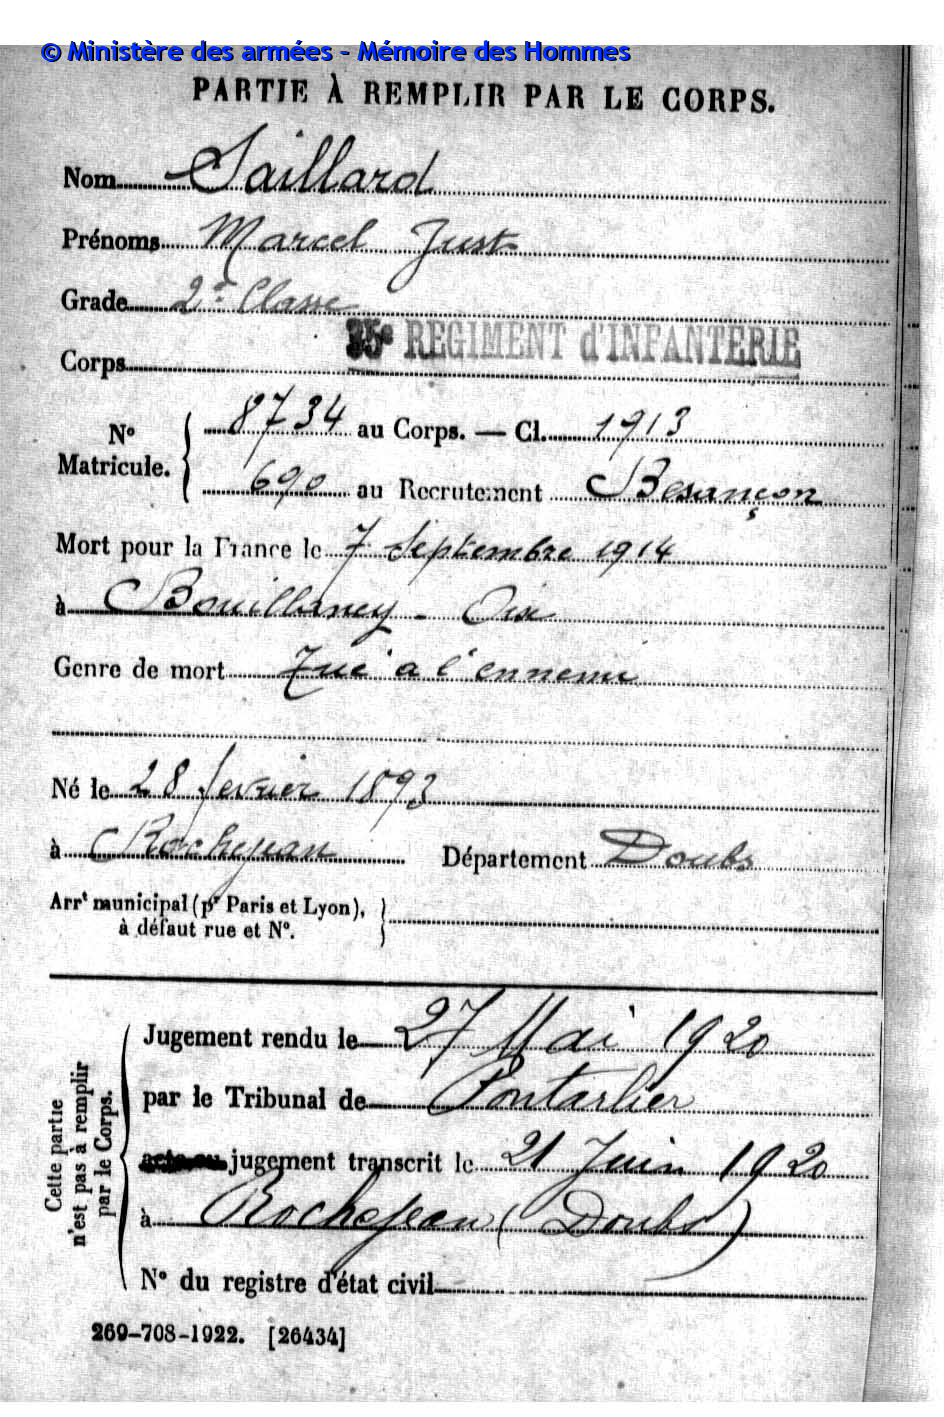 © Ministère des armées - Mémoire des Hommes
PARTIE À REMPLIR PAR LE CORPS.
Nom Saillard
Prénoms Marcel Just
Grade 2e Classe
Corps 35e REGIMENT d'INFANTERIE
No Matricule. 8734 au Corps. — Cl. 1913
690 au Recrutement Besançon
Mort pour la France le 7 Septembre 1914
à Bouillancy - Oise
Genre de mort Tué a l'ennemi
Né le 28 fevrier 1893
à Rochejean Département Doubs
Arrt municipal (pr Paris et Lyon),
à défaut rue et No.
Cette partie
n'est pas à remplir
par le Corps.
Jugement rendu le 27 Mai 1920
par le Tribunal de Pontarlier
jugement transcrit le 21 Juin 1920
à Rochejean (Doubs)
No du registre d'état civil
269-708-1922. [26434]